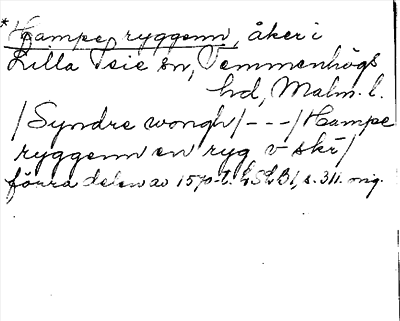 *Hampe ryggenn, åker i
Lilla Beie sn, Vemmenhögs
hd, Malm. l.
/Syndre wongh/---/Hampe
ryggenn en ryg v skr̄/
förra delen av 1570-t. LSLB1, s. 311. orig.